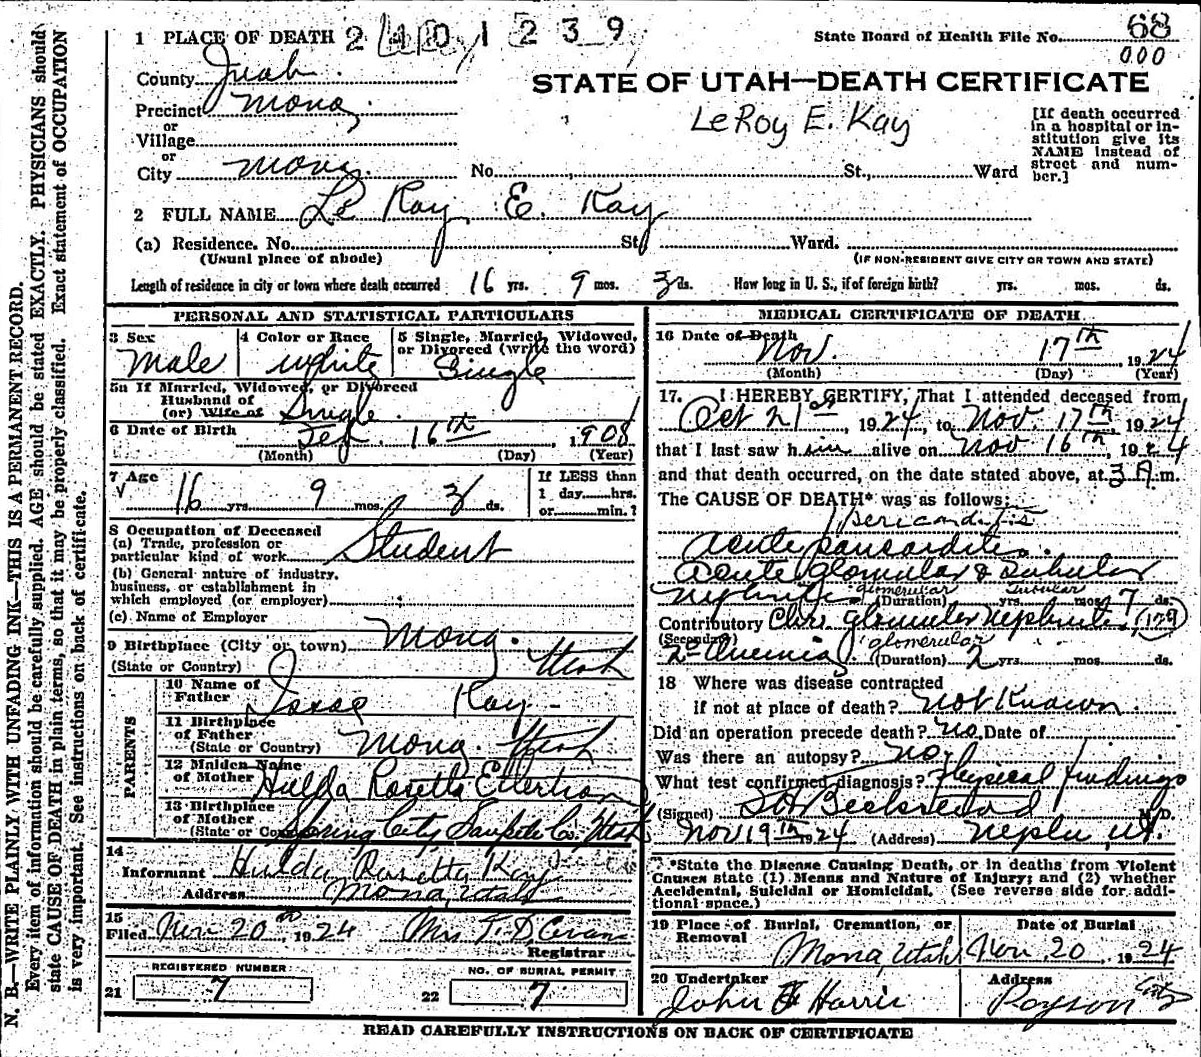 1 PLACE OF DEATH 2401239
State Board of Health File No. 68
000
County Juab.
STATE OF UTAH—DEATH CERTIFICATE
Precinct Mona.
LeRoy E. Kay
or
Village
or
City Mona. No. St., Ward
[If death occurred
in a hospital or in-
stitution give its
NAME instead of
street and num-
ber.]
2 FULL NAME Le Roy E. Kay
(a) Residence. No. St. Ward.
(Usual place of abode)
(IF NON-RESIDENT GIVE CITY OR TOWN AND STATE)
Length of residence in city or town where death occurred 16 yrs. 9 mos. 3 ds. How long in U. S., if of foreign birth? yrs. mos. ds.
PERSONAL AND STATISTICAL PARTICULARS
3 Sex
Male
4 Color or Race
White
5 Single, Married, Widowed,
or Divorced (write the word)
Single
5a If Married, Widowed, or Divorced
Husband of
(or) Wife of Single.
6 Date of Birth Feb. 16th, 1908
(Month) (Day) (Year)
7 Age
16 yrs. 9 mos. 3 ds.
If LESS than
1 day hrs.
or min.?
8 Occupation of Deceased
(a) Trade, profession or
particular kind of work Student
(b) General nature of industry,
business, or establishment in
which employed (or employer)
(c) Name of Employer
9 Birthplace (City or town) Mona.
(State or Country) Utah
PARENTS
10 Name of
Father Isaac Kay
11 Birthplace
of Father
(State or Country) Mona. Utah
12 Maiden Name
of Mother Hulda Rosetta
13 Birthplace
of Mother
(State or Country) Spring City, Sanpete Co. Utah
14
Informant Hulda Rosetta Kay
Address Mona, Utah
15
Filed Nov 20th, 1924 Mrs T. D. Evans
Registrar
REGISTERED NUMBER
21 7
NO. OF BURIAL PERMIT
22 7
MEDICAL CERTIFICATE OF DEATH
16 Date of Death
Nov. 17th 1924
(Month) (Day) (Year)
17. I HEREBY CERTIFY, That I attended deceased from
Oct 21st, 1924, to Nov. 17th, 1924
that I last saw him alive on Nov 16th, 1924
and that death occurred, on the date stated above, at 3 A. m.
The CAUSE OF DEATH* was as follows:
Pericarditis
Acute pancarditis.
Acute glomular & tubular
glomerular tubular
Nephritis (Duration) yrs. mos. 7 ds.
Contributory Chr. glomular Nephritis, (129)
(Secondary) glomerular
(Duration) 2 yrs. mos. ds.
18 Where was disease contracted
if not at place of death? not Known.
Did an operation precede death? no Date of
Was there an autopsy? no
What test confirmed diagnosis? Physical findings
(Signed) Beckstead M. D.
Nov 19th 1924 (Address) Nephi, Ut.
*State the Disease Causing Death, or in deaths from Violent
Causes state (1) Means and Nature of Injury; and (2) whether
Accidental, Suicidal or Homicidal. (See reverse side for addi-
tional space.)
19 Place of Burial, Cremation, or
Removal
Mona, Utah
Date of Burial
Nov. 20 1924
20 Undertaker
John Harris
Address
Payson City
READ CAREFULLY INSTRUCTIONS ON BACK OF CERTIFICATE
N. B.—WRITE PLAINLY WITH UNFADING INK—THIS IS A PERMANENT RECORD.
Every item of information should be carefully supplied. AGE should be stated EXACTLY. PHYSICIANS should
state CAUSE OF DEATH in plain terms, so that it may be properly classified. Exact statement of OCCUPATION
is very important. See instructions on back of certificate.